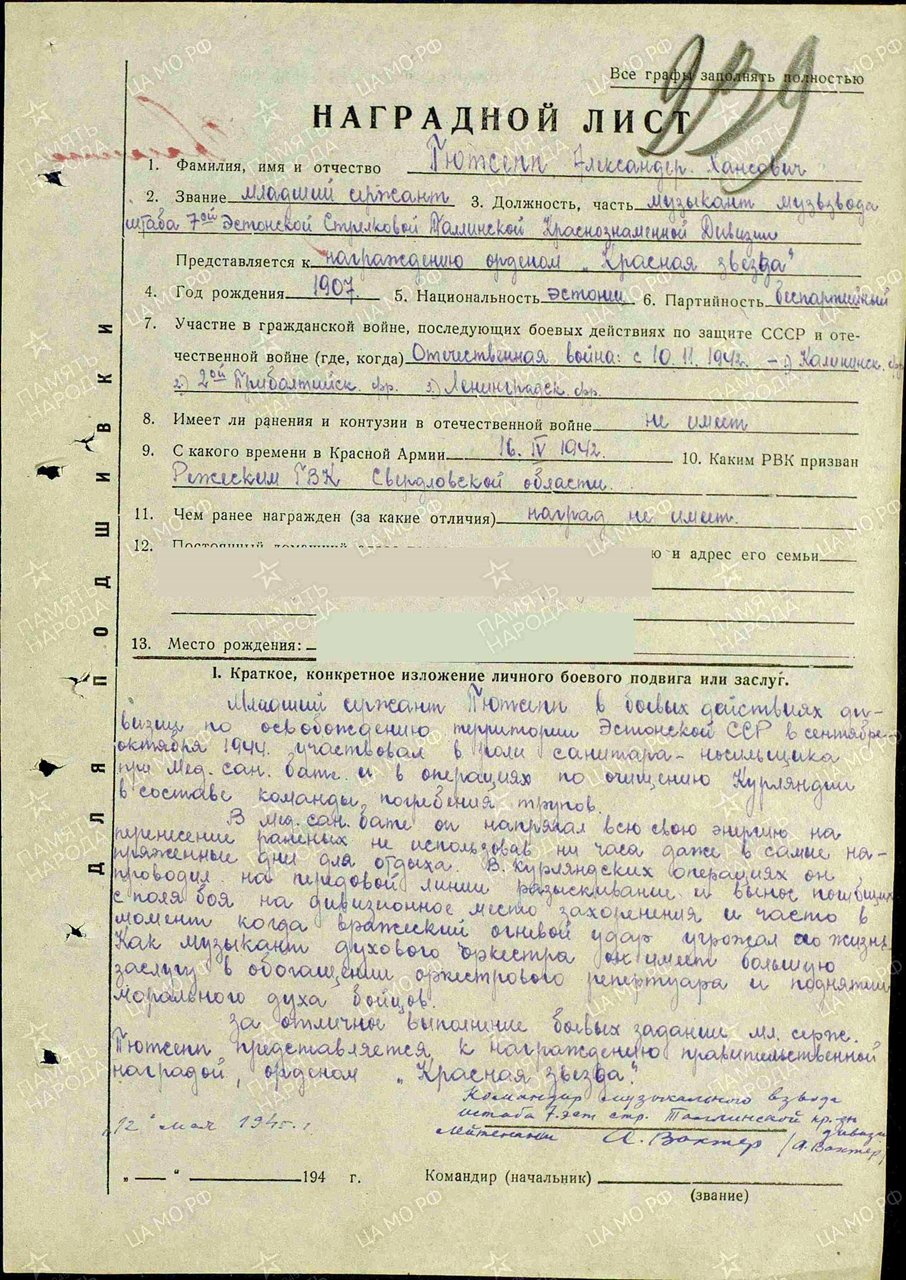 Все графы заполнять полностью
939
НАГРАДНОЙ ЛИСТ
1. Фамилия, имя и отчество Пютсепп Александер Хансович
2. Звание младший сержант 3. Должность, часть музыкант музвзвода
штаба 7ой Эстонской Стрелковой Таллинской Краснознаменной Дивизии
Представляется к награждению орденом „Красная звезда"
4. Год рождения 1907. 5. Национальность эстонец 6. Партийность беспартийный
7. Участие в гражданской войне, последующих боевых действиях по защите СССР и оте-
чественной войне (где, когда) Отечественная война: с 10.11.1942 – 1) Калининск. фр.
2) 2ой Прибалтийск. фр. 3) Ленинградск. фр.
8. Имеет ли ранения и контузии в отечественной войне не имеет
9. С какого времени в Красной Армии 16. IV 1942. 10. Каким РВК призван
Режеским РВК Свердловской области.
11. Чем ранее награжден (за какие отличия) наград не имеет.
12. и адрес его семьи
13. Место рождения:
I. Краткое, конкретное изложение личного боевого подвига или заслуг.
Младший сержант Пютсепп в боевых действиях ди-
визии по освобождению территории Эстонской ССР в сентябре-
октября 1944. участвовал в роли санитара-носильщика
при Мед. сан. бате. и в операциях по очищению Курляндии
в составе команды погребения трупов.
В мед. сан. бате он напрягал всю свою энергию на
перенесение раненых не использовав ни часа даже в самые на-
пряженные дни для отдыха. В Курляндских операциях он
проводил на передовой линии разыскивание и вынос погибших
с поля боя на дивизионное место захоронения и часто в
момент когда вражеский огневой удар угрожал его жизнь.
Как музыкант духового оркестра он имеет большую
заслугу в обогащении оркестрового репертуара и поднятии
морального духа бойцов.
За отличное выполнение боевых задании мл. серж.
Пютсепп представляется к награждению правительственной
наградой, орденом „Красная звезда".
Командир музыкального взвода
штаба 7. эст. стр. Таллинской кр. зн. дивизии
„12" мая 1945 г. лейтенант А. Вахтер /А. Вахтер/
„ " 194 г. Командир (начальник)
(звание)
ДЛЯ ПОДШИВКИ
ПАМЯТЬ НАРОДА
ЦА МО РФ